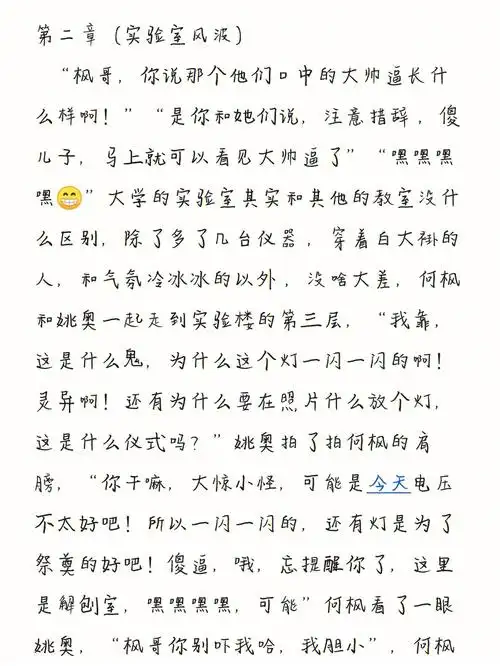 第二章（实验室风波）
“枫哥，你说那个他们口中的大帅逼长什
么样啊！”“是你和她们说，注意措辞，傻
儿子，马上就可以看见大帅逼了”“嘿嘿嘿
嘿😁”大学的实验室其实和其他的教室没什
么区别，除了多了几台仪器，穿着白大褂的
人，和气氛冷冰冰的以外，没啥大差，何枫
和姚奥一起走到实验楼的第三层，“我靠，
这是什么鬼，为什么这个灯一闪一闪的啊！
灵异啊！还有为什么要在照片什么放个灯，
这是什么仪式吗？”姚奥拍了拍何枫的肩
膀，“你干嘛，大惊小怪，可能是今天电压
不太好吧！所以一闪一闪的，还有灯是为了
祭奠的好吧！傻逼，哦，忘提醒你了，这里
是解刨室，嘿嘿嘿嘿，可能”何枫看了一眼
姚奥，“枫哥你别吓我哈，我胆小”，何枫